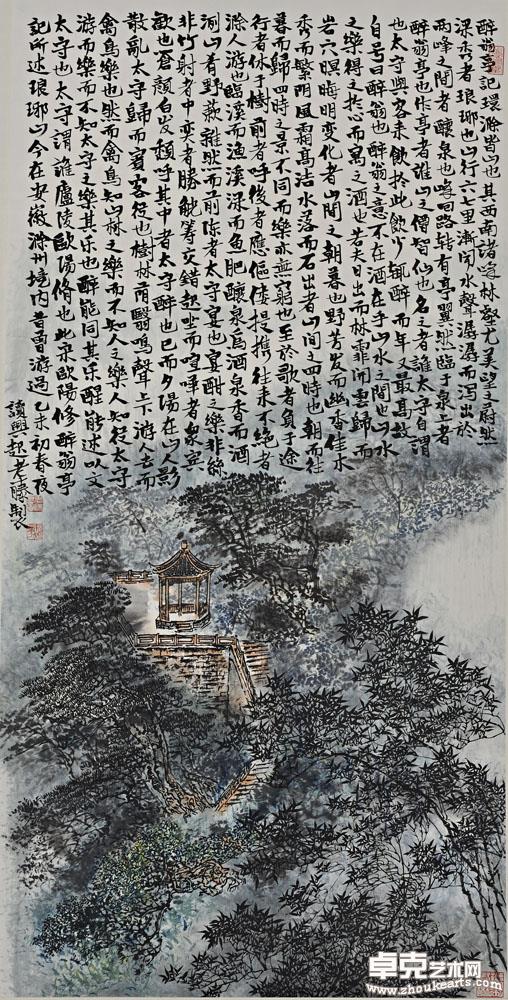 醉翁亭記環滁皆山也其西南諸峰林壑尤美望之蔚然
深秀者琅琊也山行六七里漸聞水聲潺潺而泻出於
两峰之間者釀泉也峰回路转有亭翼然臨于泉上者
醉翁亭也作亭者誰山之僧智仙也名之者誰太守自謂
也太守與客来飲於此飲少輒醉而年又最高故
自号曰醉翁也醉翁之意不在酒在乎山水之間也山水
之樂得之於心而寓之酒也若夫日出而林霏開雲歸而
岩穴暝晦明变化者山間之朝暮也野芳发而幽香佳木
秀而繁阴風霜高洁水落而石出者山间之四時也朝而往
暮而歸四時之景不同而樂亦無窮也至於歌者負于途
行者休于樹前者呼後者應傴偻提携往来不绝者
滁人游也臨溪而渔溪深而魚肥釀泉爲酒泉香而酒
洌山肴野蔌雜然而前陈者太守宴也宴酣之樂非絲
非竹射者中弈者勝觥筹交錯起坐而喧呼者衆宾
歡也蒼颜白发颓乎其中者太守醉也已而夕陽在山人影
散亂太守歸而賓客從也樹林荫翳鳴聲上下游人去而
禽鸟樂也然而禽鸟知山林之樂而不知人之樂人知從太守
游而樂而不知太守之樂其乐也醉能同其乐醒能述以文
太守也太守謂誰廬陵歐陽脩也此录歐陽修醉翁亭
記所述琅琊山今在安徽滁州境内昔曾游過乙未初春夜
讀興起老滕製
卓克艺术网
www.zhoukearts.com